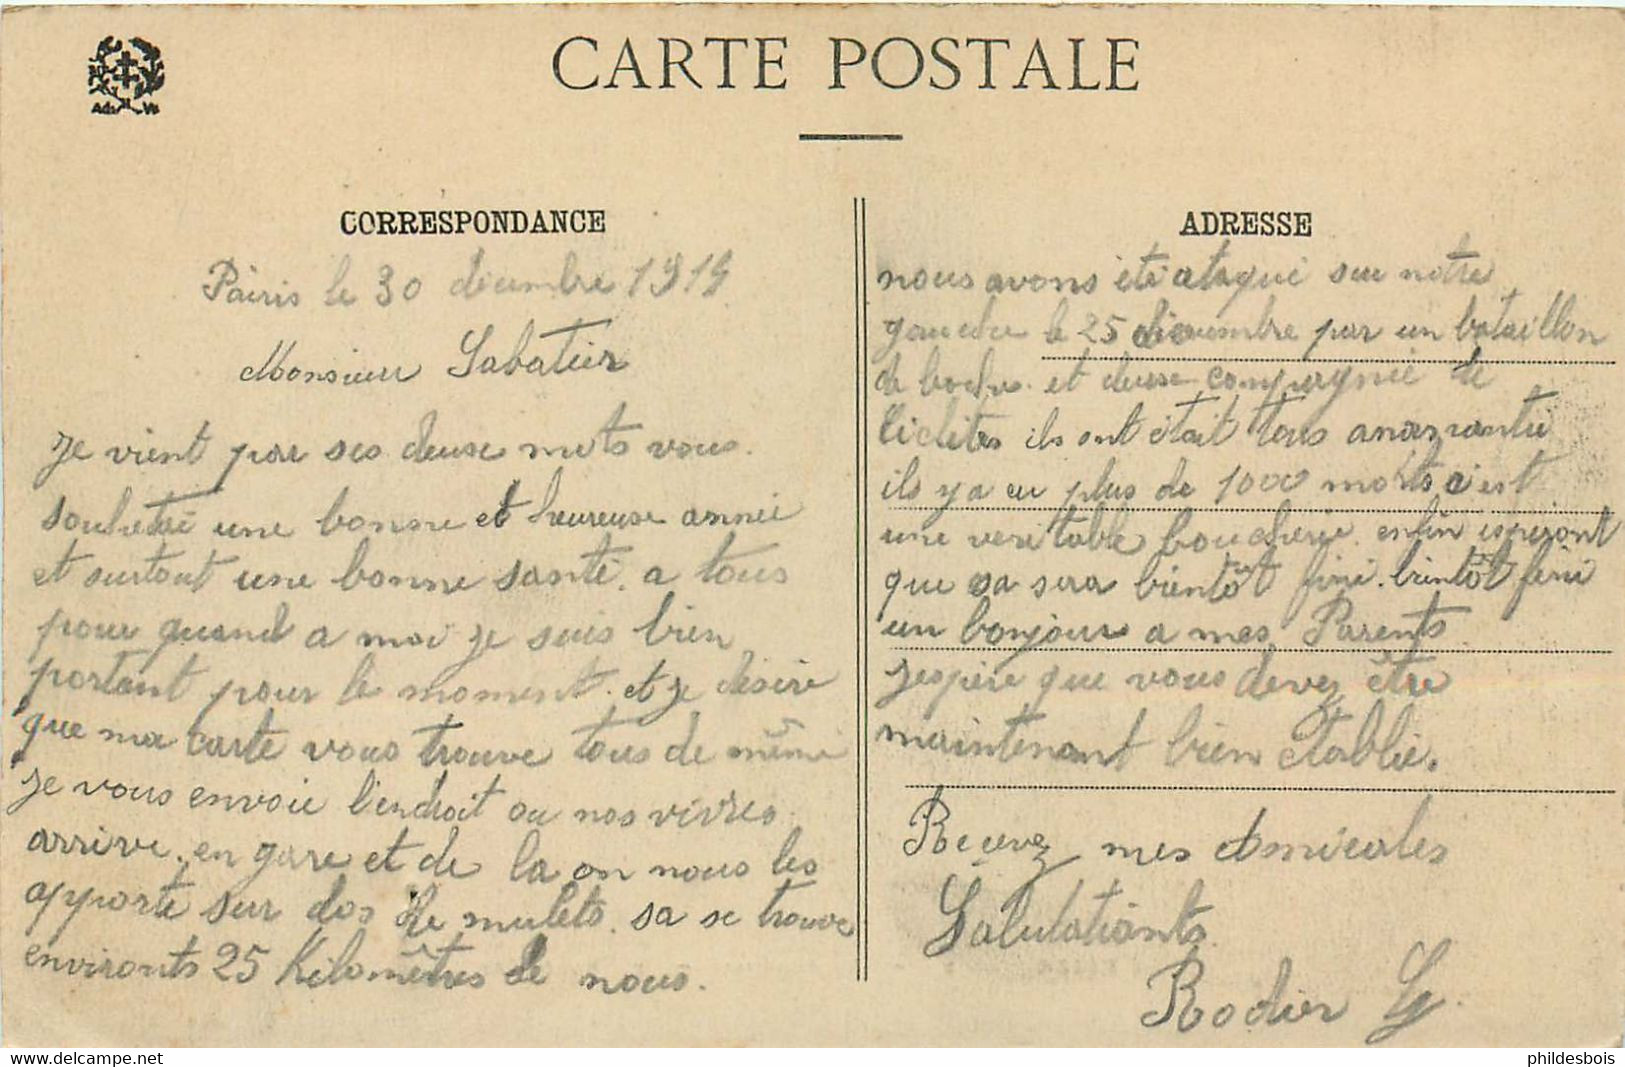 CARTE POSTALE
CORRESPONDANCE
Pairis le 30 decembre 1914
Monsieur Sabatier
Je vient par ses deuse mots vous
souhetai une bonne et heureuse année
et surtout une bonne santé. a tous
pour quand a moi je suis bien
portant pour le moment. et je desire
que ma carte vous trouve tous de même
Je vous envoie l'endroit ou nos vivres
arrive. en gare et de la on nous les
apporte sur dos de mulets. sa se trouve
environts 25 Kilomêtres de nous.
ADRESSE
nous avons été ataqué sur notre
gauche le 25 decembre par un bataillon
de boche. et deuse compagnie de
ils ont était tous
ils y a eu plus de 1000 morts c'est
une veritable boucherie. enfin esperont
que sa sera bientôt fini. bientôt fini
un bonjour a mes Parents
Jespère que vous devez être
maintenant bien etablie.
Recevez mes Amicales
Salutationts
Rodier G.
phildesbois